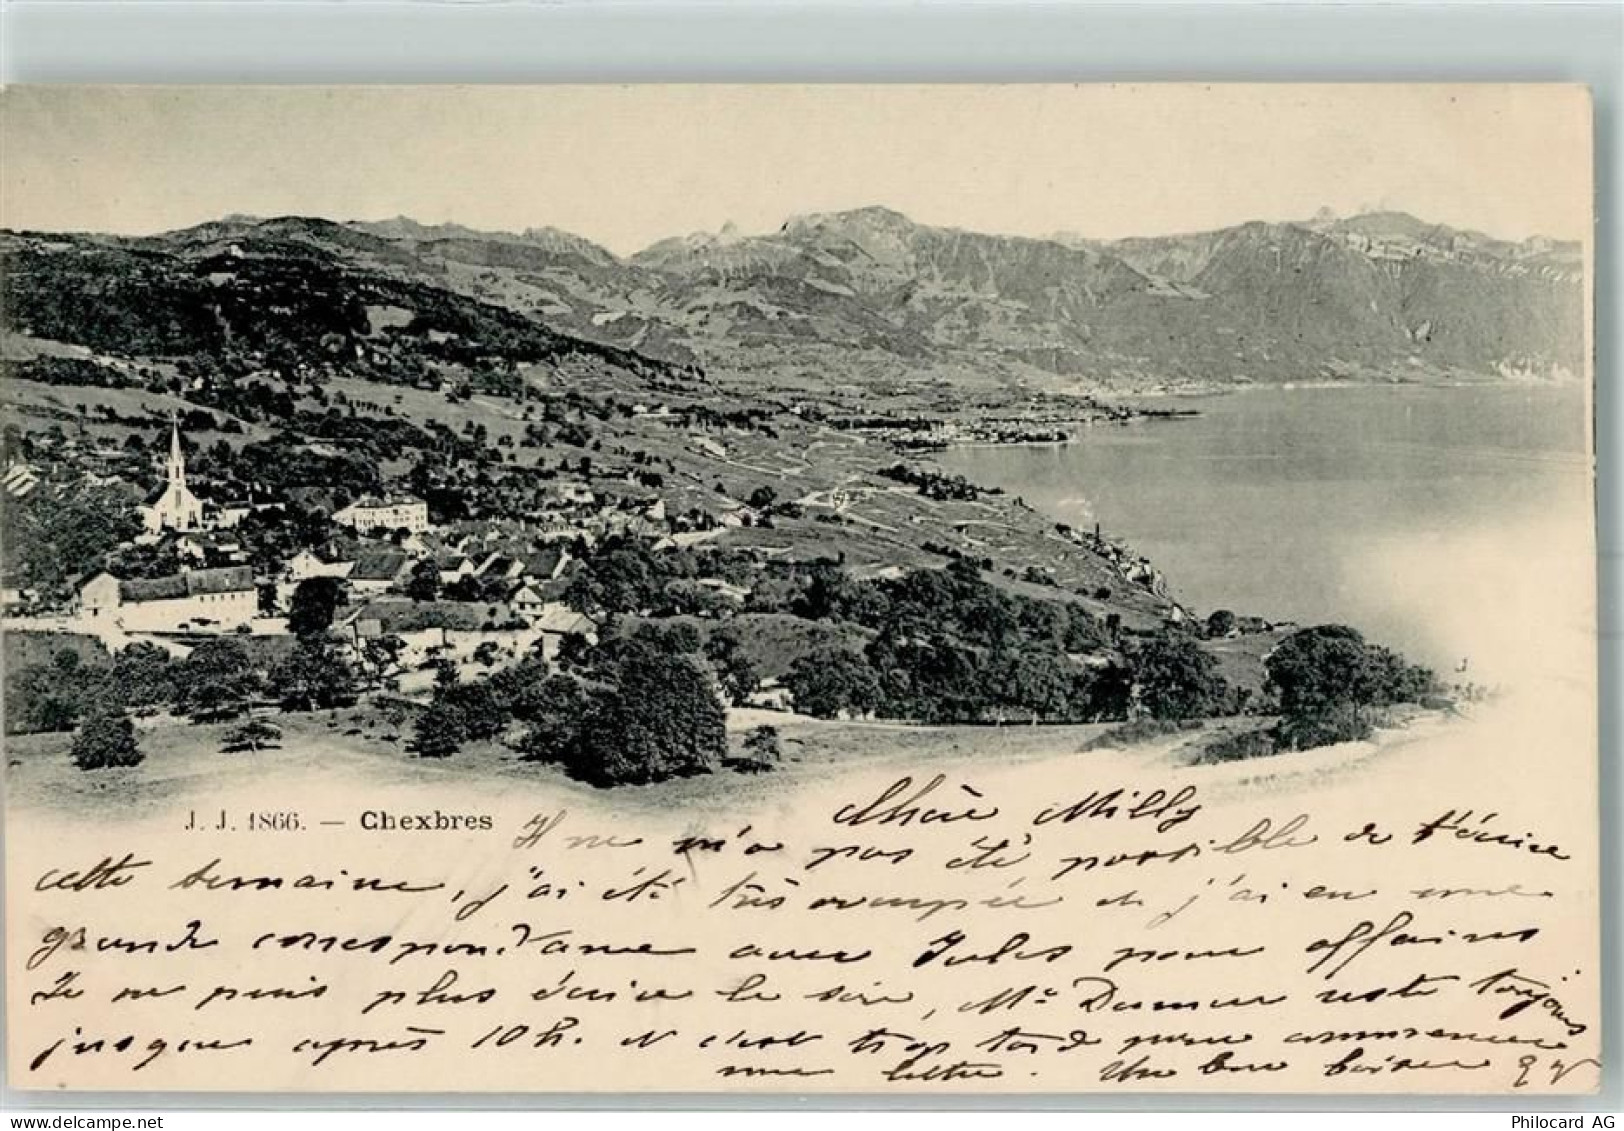 J. J. 1866. — Chexbres
Chère Milly
Il ne m'a pas été possible de t'écrire
cette semaine, j'ai été très occupée et j'ai eu une
grande correspondance avec Jules pour affaires
Je ne puis plus écrire le soir, Mr reste toujours
jusque après 10 h. et c'est trop tard pour commencer
une lettre. Un bon baiser
Philocard AG